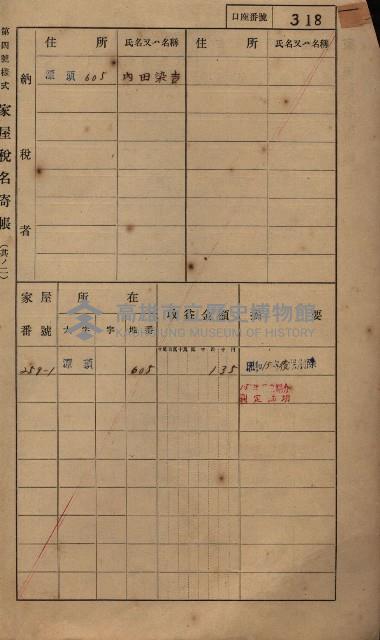 口座番號 318
第四號樣式 家屋稅名寄帳 (其ノ二)
納稅者
住所 氏名又ハ名稱 住所 氏名又ハ名稱
潭頭 605 內田染吉
家屋番號 所在 收益金額 摘要
大字 字 地番
高雄市立歷史博物館
KAOHSIUNG MUSEUM OF HISTORY
259-1 潭頭 605 135